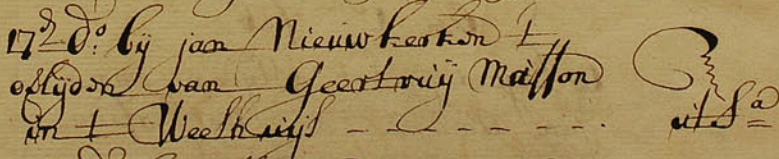 17e do. bij jan Nieuwkerken t
oflijden van Geertruij Masson
in t Weeshuijs - - - - - - - . ut Sa